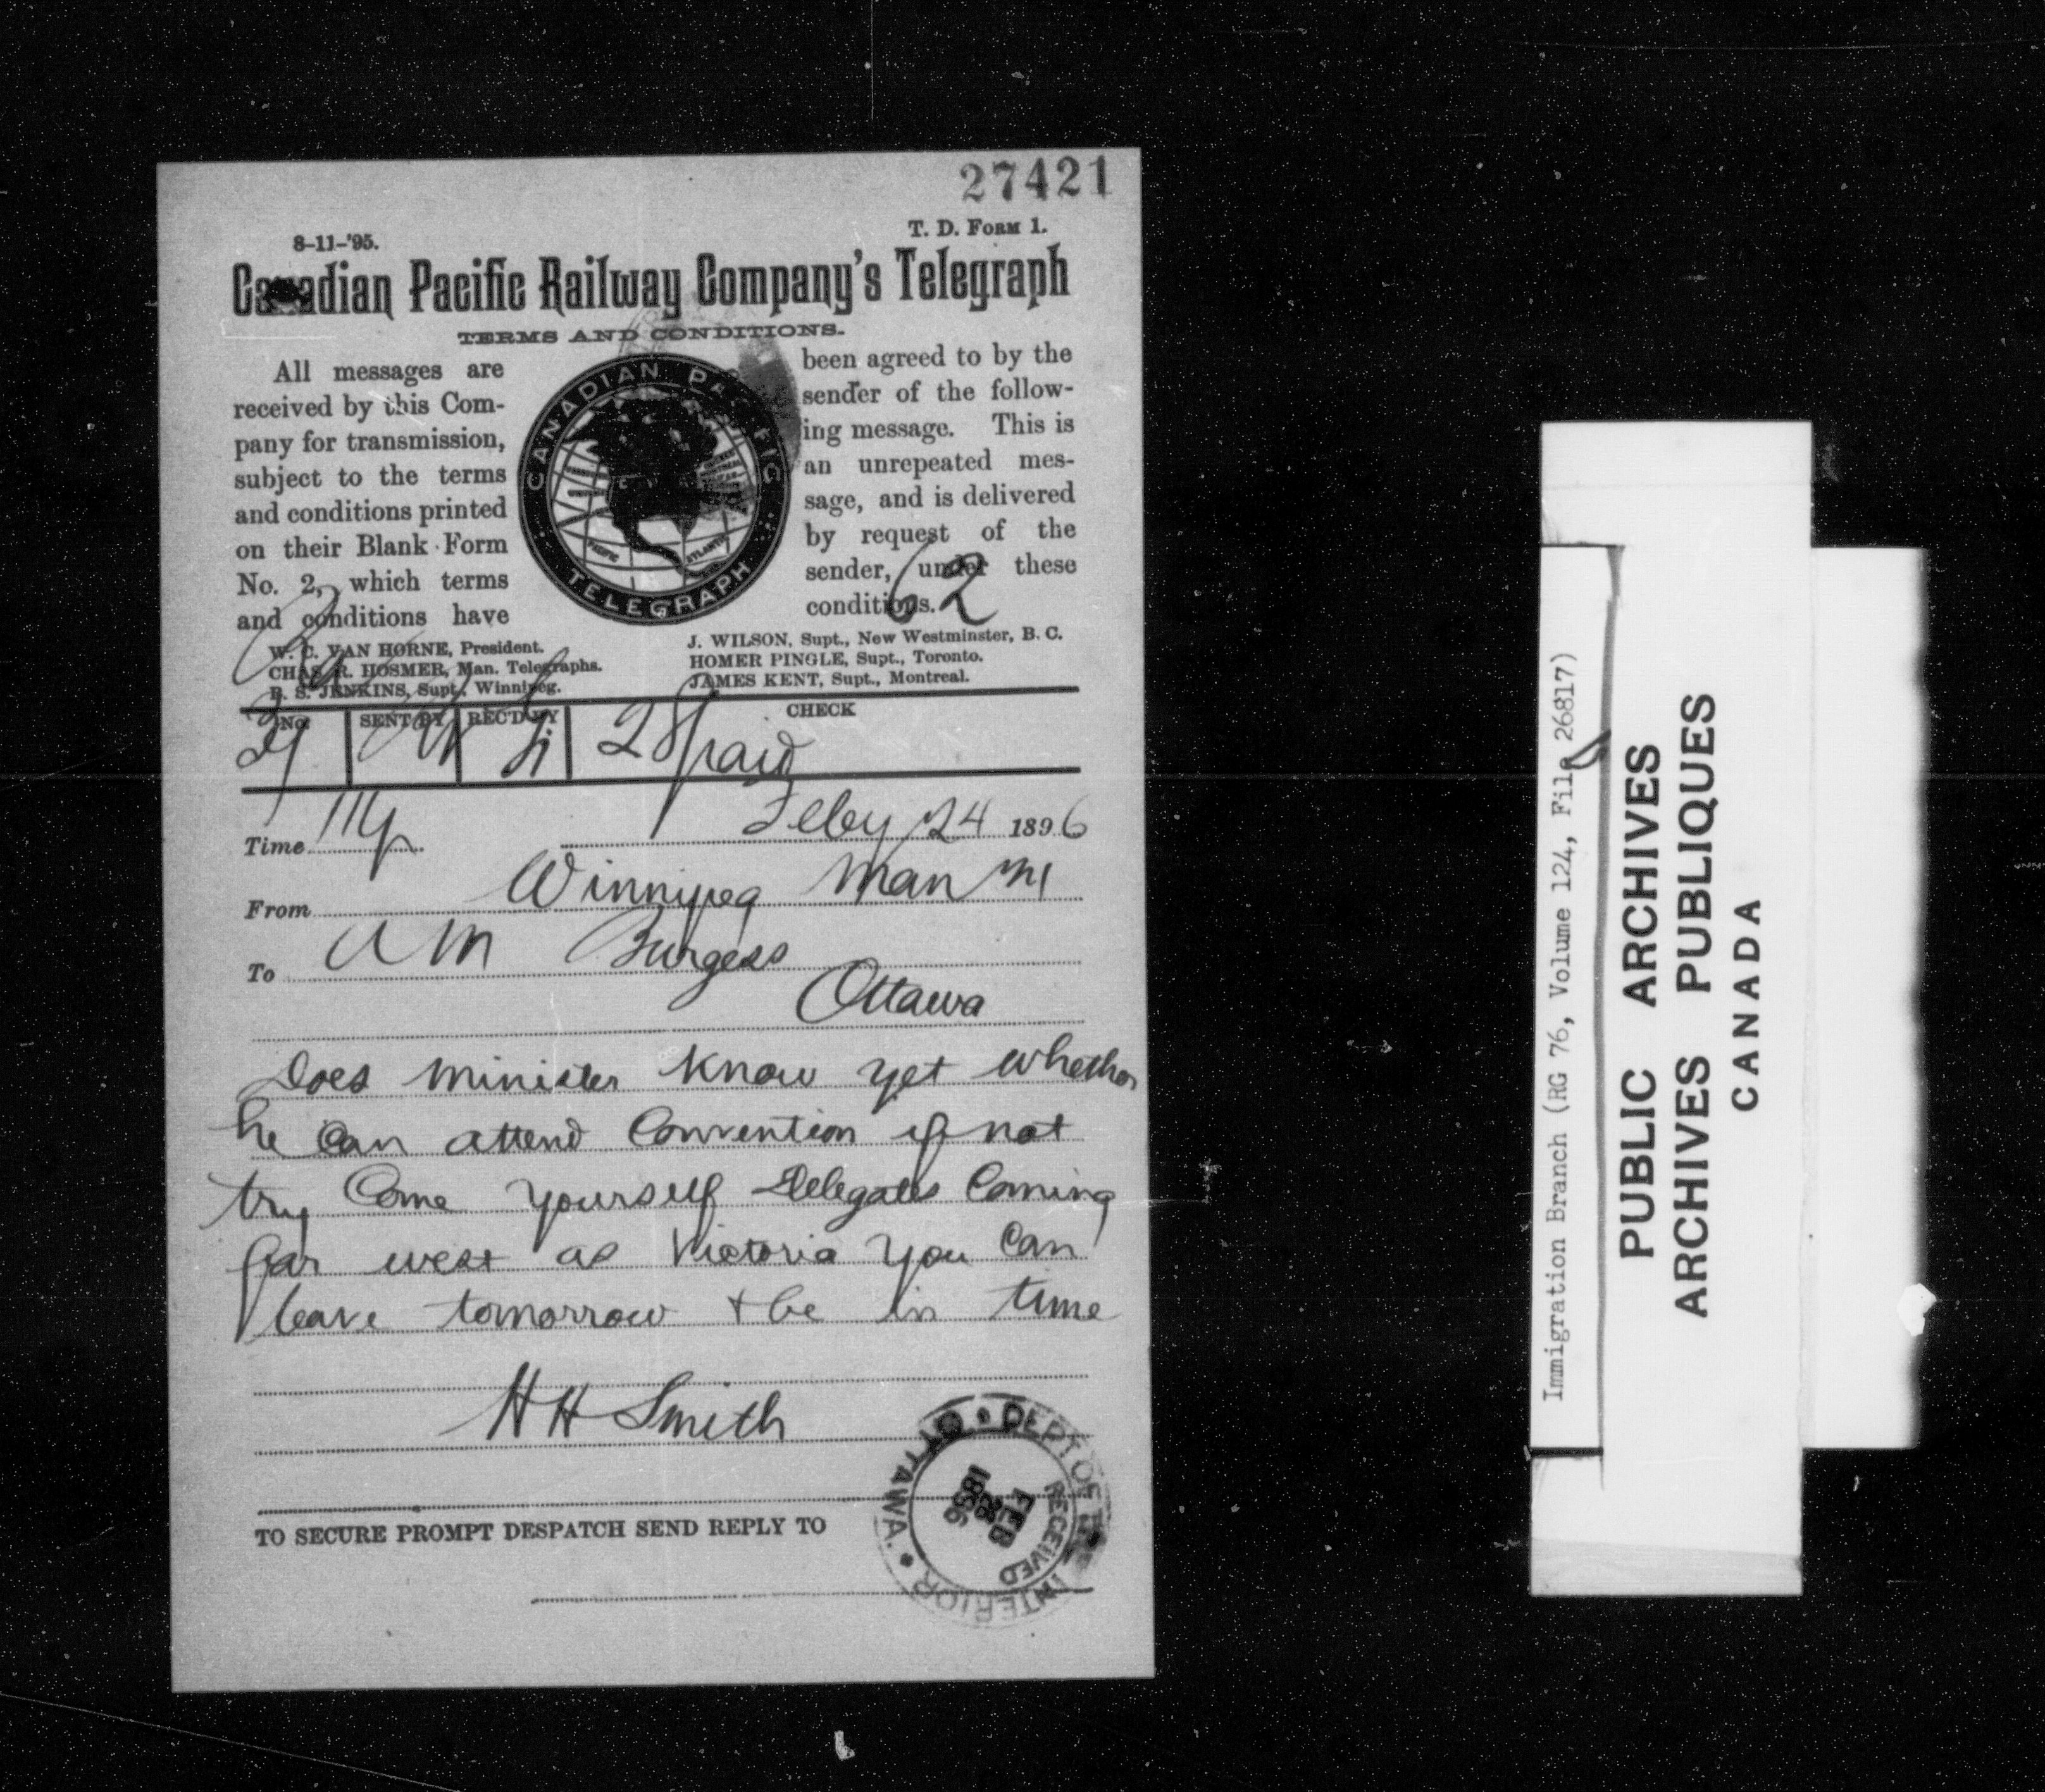 27421
8-11-'95.
T. D. FORM 1.
Canadian Pacific Railway Company's Telegraph
TERMS AND CONDITIONS.
All messages are
received by this Com-
pany for transmission,
subject to the terms
and conditions printed
on their Blank Form
No. 2, which terms
and conditions have
CANADIAN PACIFIC
TELEGRAPH
PACIFIC
ATLANTIC
been agreed to by the
sender of the follow-
ing message. This is
an unrepeated mes-
sage, and is delivered
by request of the
sender, under these
conditions.
62
W. C. VAN HORNE, President.
CHAS. R. HOSMER, Man. Telegraphs.
B. S. JENKINS, Supt., Winnipeg.
J. WILSON, Supt., New Westminster, B. C.
HOMER PINGLE, Supt., Toronto.
JAMES KENT, Supt., Montreal.
No. SENT BY REC'D BY CHECK
28 paid
Time
Feby 24 1896
From Winnipeg Man
To A M Burgess
Ottawa
Does minister know yet whether
he can attend Convention if not
try Come yourself Delegates Coming
far west as Victoria you can
leave tomorrow + be in time
H H Smith
DEPT OF THE INTERIOR • OTTAWA. •
RECEIVED
FEB
1896
TO SECURE PROMPT DESPATCH SEND REPLY TO
Immigration Branch (RG 76, Volume 124, File 26817)
PUBLIC ARCHIVES
ARCHIVES PUBLIQUES
CANADA